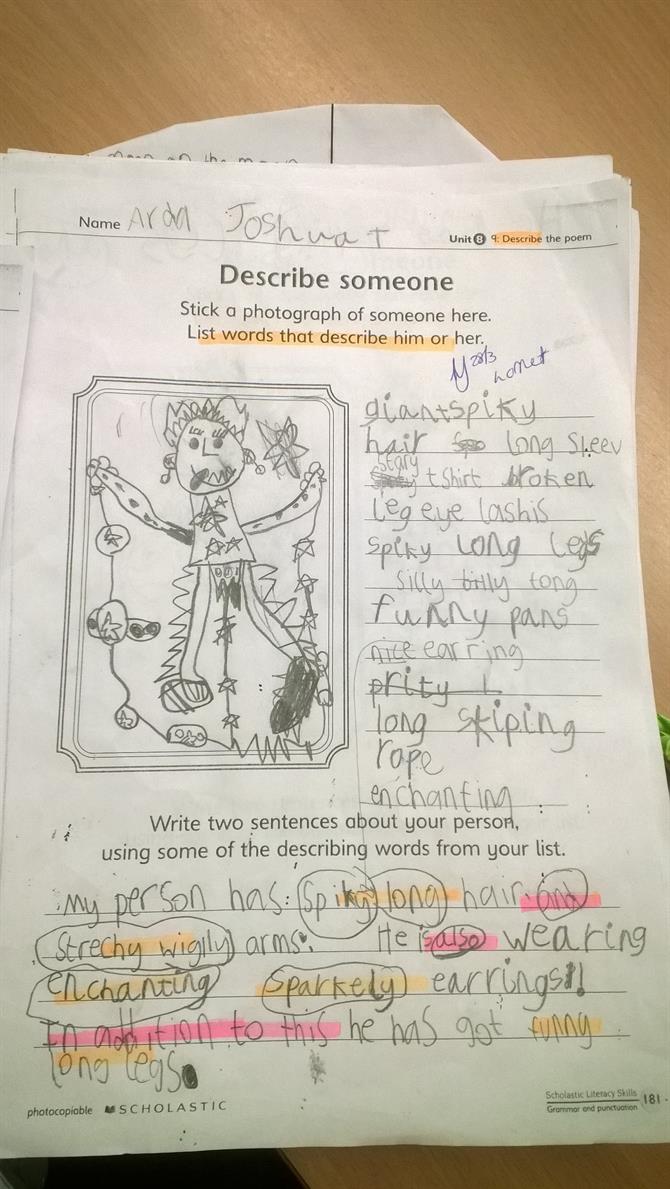 Name Arda Joshua T
Unit 8 9: Describe the poem
Describe someone
Stick a photograph of someone here.
List words that describe him or her.
giant spiky
hair long sleev
stary t shirt broken
leg eye lashis
spiky long legs
silly billy tong
funny pans
nice earring
prity
long skiping
rope
enchanting
Write two sentences about your person,
using some of the describing words from your list.
My person has: spiky long hair. and
strechy wigily arms. He is also wearing
enchanting sparkely earrings!!
In addition to this he has got funny
long legs.
photocopiable SCHOLASTIC
Scholastic Literacy Skills
Grammar and punctuation
181